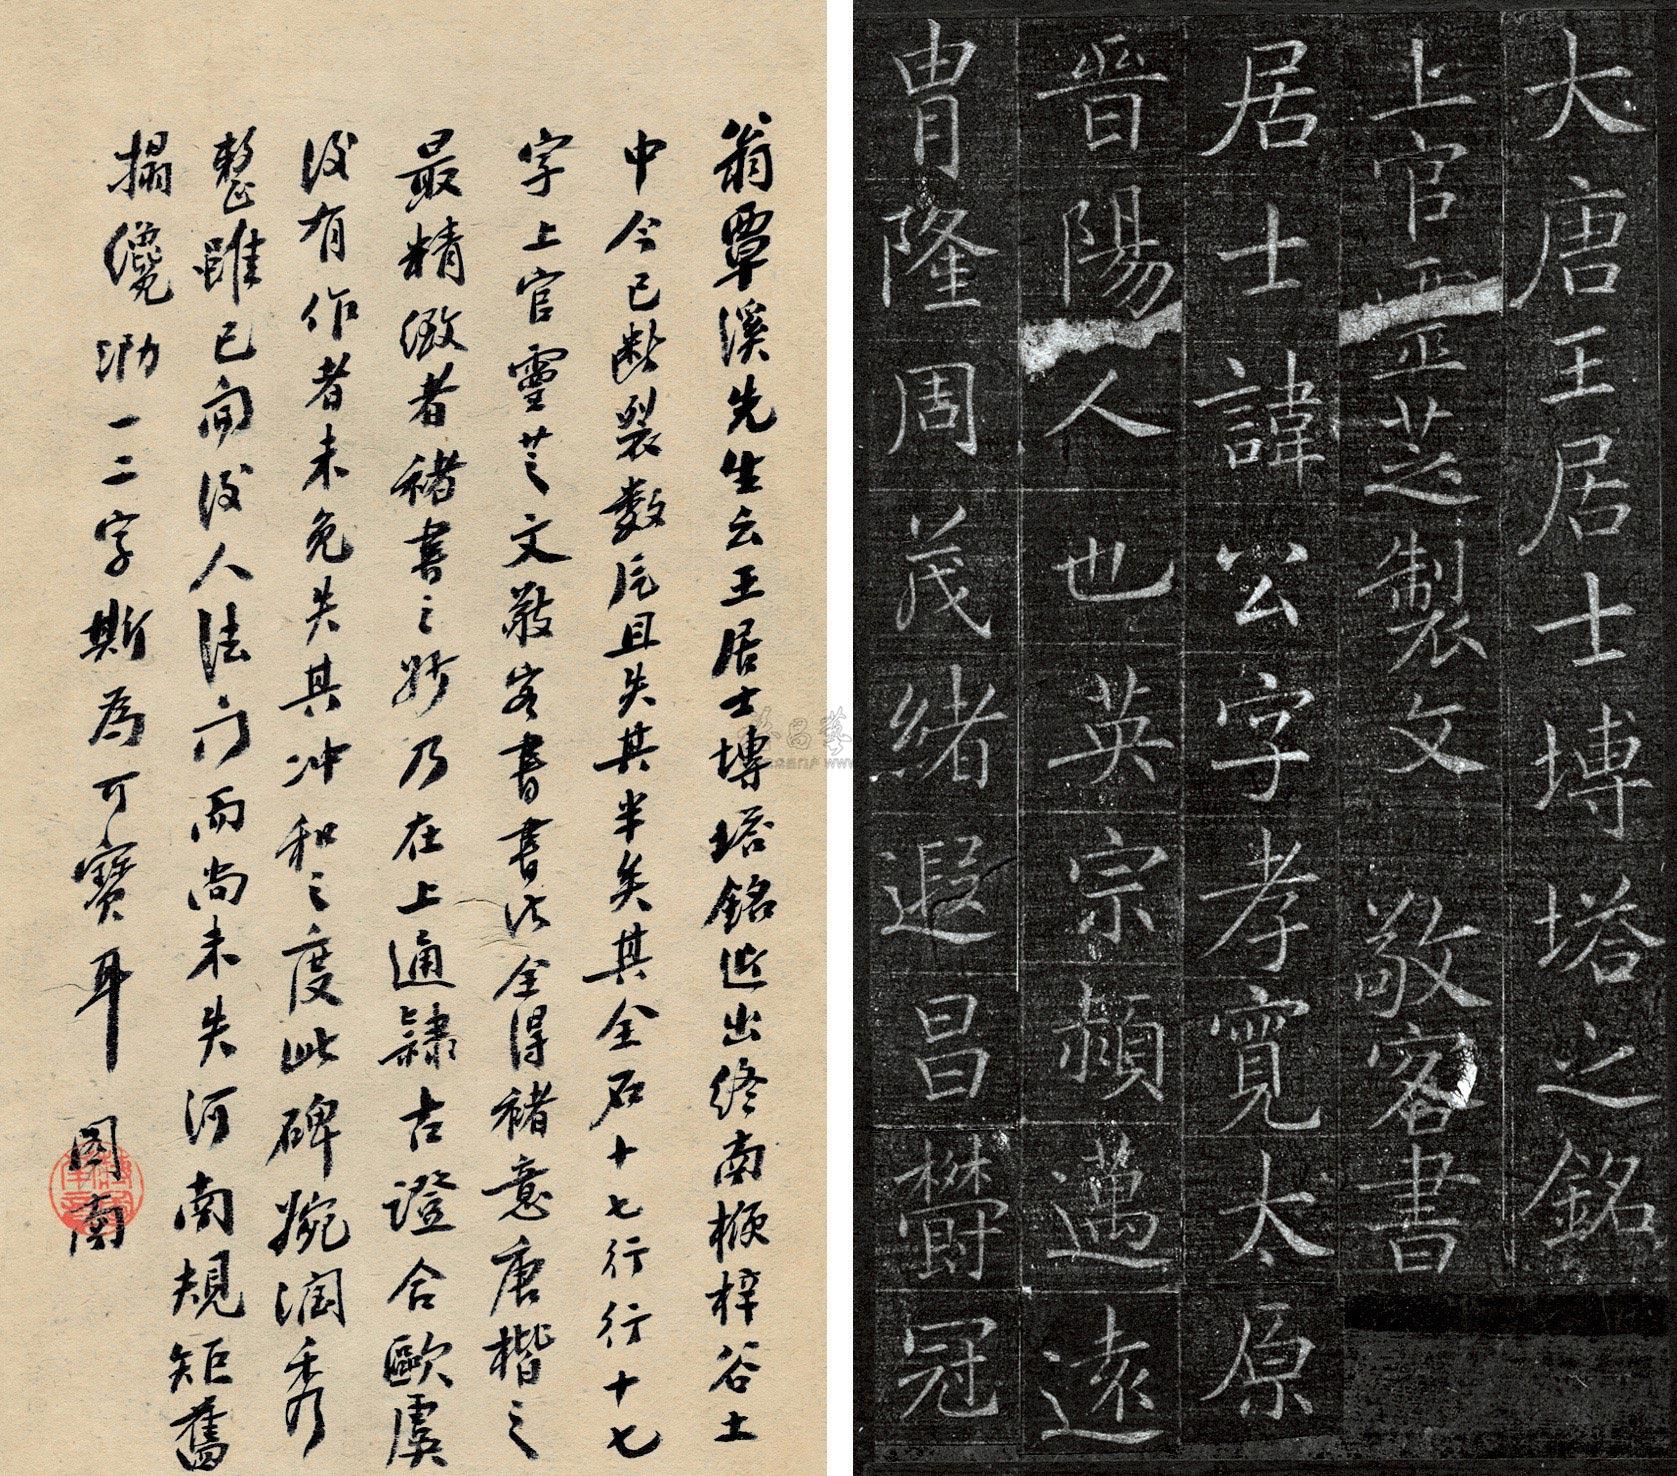 大唐王居士塼塔之銘
上官靈芝製文 敬客書
居士諱公字孝寬太原
晉陽人也英宗穎邁遠
冑隆周茂緒遐昌欝冠
翁覃溪先生云王居士塼塔銘近出終南楩梓谷土
中今已斷裂數片且失其半矣其全石十七行行十七
字上官靈芝文敬客書書法全得褚意唐楷之
最精緻者褚書之妙乃在上通隸古證合歐虞
後有作者未免失其冲和之度此碑婉潤秀
整雖已開後人法門而尚未失河南規矩舊
搨纔泐一二字斯為可寶耳 圖南